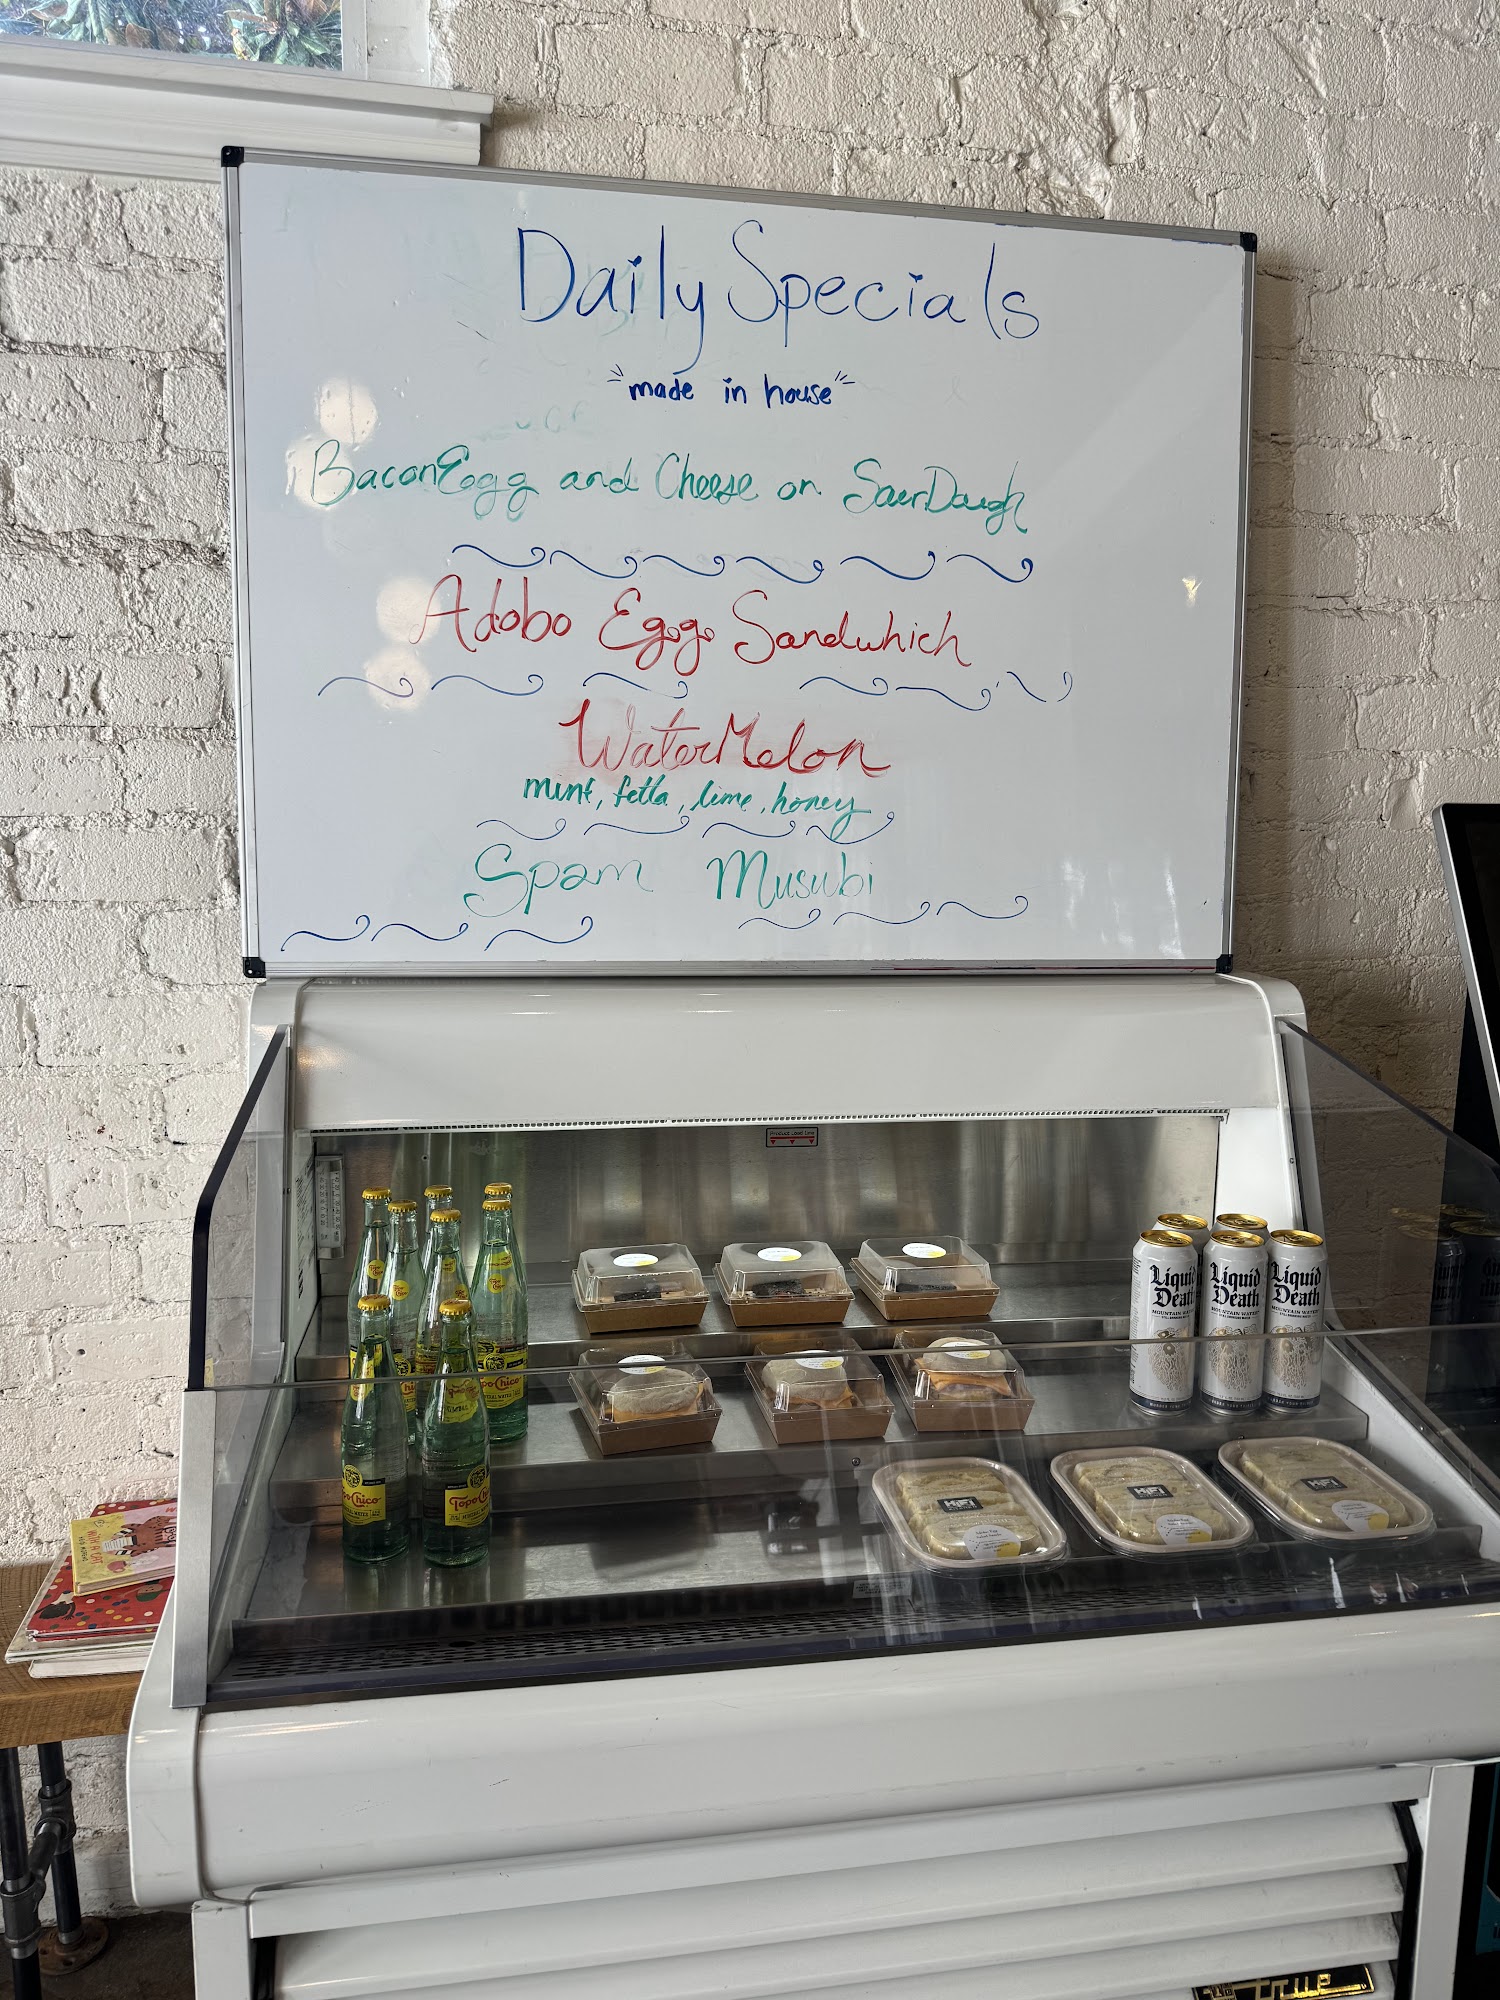 Daily Specials
"made in house"
Bacon Egg and Cheese on SaurDaugh
Adobo Egg Sandwhich
WaterMelon
mint, fetta, lime, honey
Spam Musubi
Product Load Line
Topo Chico
Topo Chico
MINERAL WATER
Liquid Death
MOUNTAIN WATER
Liquid Death
MOUNTAIN WATER
Liquid Death
MOUNTAIN WATER
HiFi
HiFi
HiFi
true